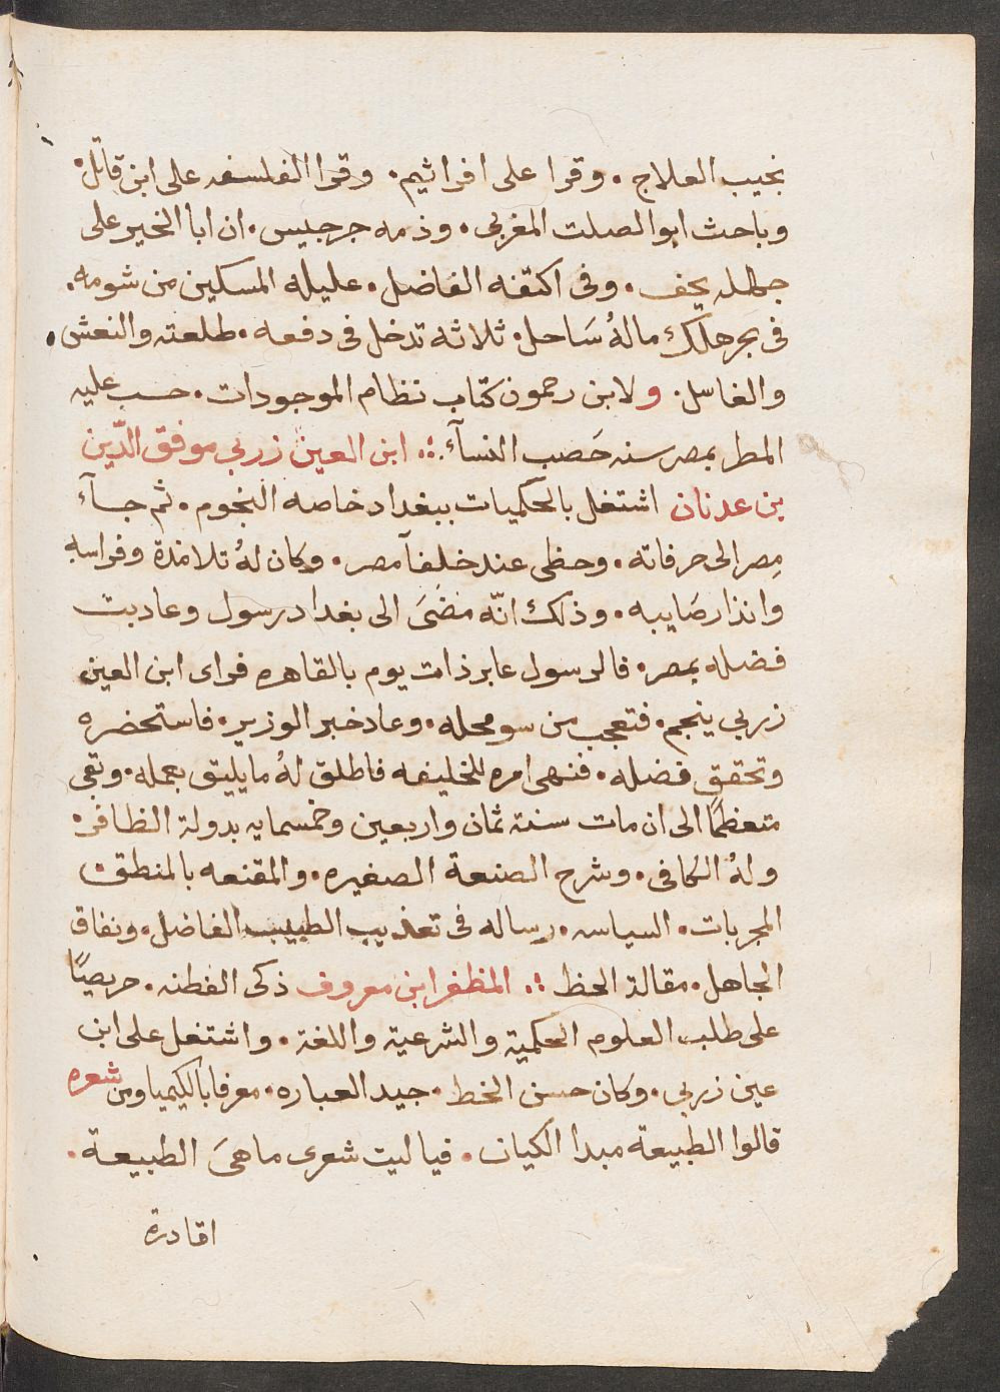 نجيب العلاج. وقرا على افراثيم. وقرا الفلسفه على ابن قاتل.
وباحث ابو الصلت المغربي. وذمه جرجيس. ان ابا الخير على
جهله يخف. وفى اكتفه الفاضل. عليله المسكين من شومه.
فى بحر هلك ماله سَاحل. ثلاثه تدخل فى دفعه. طلعته والنعش.
والغاسل. ولابن رحمون كتاب نظام الموجودات. حسب عليه
المطر بمصر سنه حَصب النسآء. ابن العين زربي موفق الدّين
بن عدنان اشتغل بالحكميات ببغداد خاصه النجوم. ثم جآء
مِصر الى حرفاته. وحظى عند خلفآ مصر. وكان لهُ تلامذة وفراسه
وانذار صَايبه. وذلك انّه مَضَىَ الى بغداد رسول وعاد بث
فضله بمصر. فالرسول عابر ذات يوم بالقاهره فراى ابن العين
زربي ينجم. فتعجب من سو محله. وعاد خبر الوزير. فاستحضره
وتحقق فضله. فنهى امره للخليفه فاطلق لهُ ما يليق بعمله. وبقى
متعظمًا الى ان مات سنة ثمان واربعين وخمسمايه بدولة الظافر.
ولهُ الكافى. وشرح الصنعة الصغيره. والمقنعه بالمنطق.
المجربات. السياسه. رساله فى تعذيب الطبيب الفاضل. ونفاق
الجاهل. مقالة الحظ. المظفر ابن معروف ذكى الفطنه. حريصًا
على طلب العلوم الحكمية والشرعية واللغة. واشتغل على ابن
عين زربي. وكان حسن الخط. جيد العباره. معرفا بالكيميا ومن شعره
قالوا الطبيعة مبدا الكيان. فيا ليت شعرى ما هىَ الطبيعة.
اقادرة